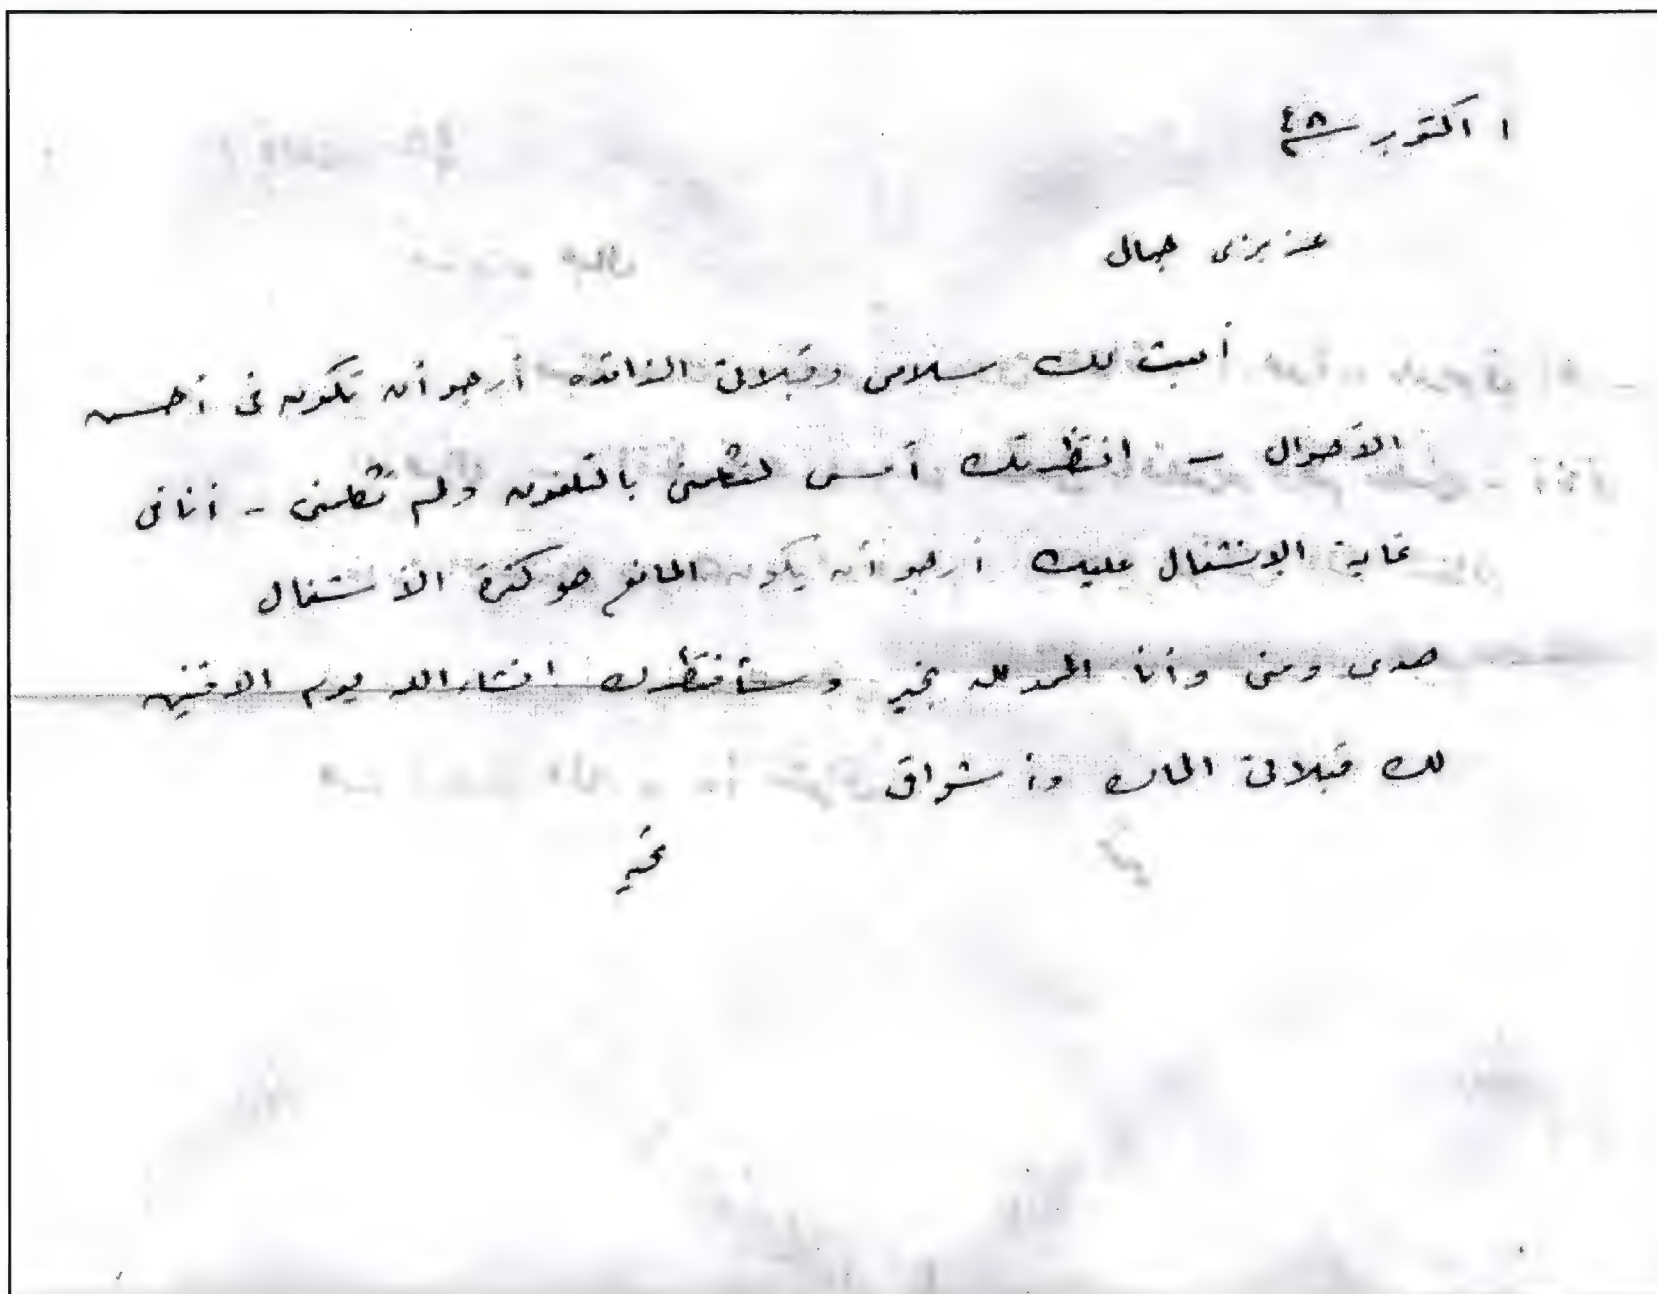 ١ اكتوبر سنة ٤٨
عزيزى جمال
أبعث لك سلامى وقبلاتى الزائده أرجو أن تكون فى أحسن
الأحوال - انتظرتك أمس لتكلمنى بالتلفون ولم تكلمنى - أنا فى
غاية الانشغال عليك أرجو أن يكون المانع هو كثرة الأشغال
هدى ومنى وأنا الحمد لله بخير وسأنتظرك انشاء الله يوم الاثنين
لك قبلاتى الحاره وأشواقى
تحيه